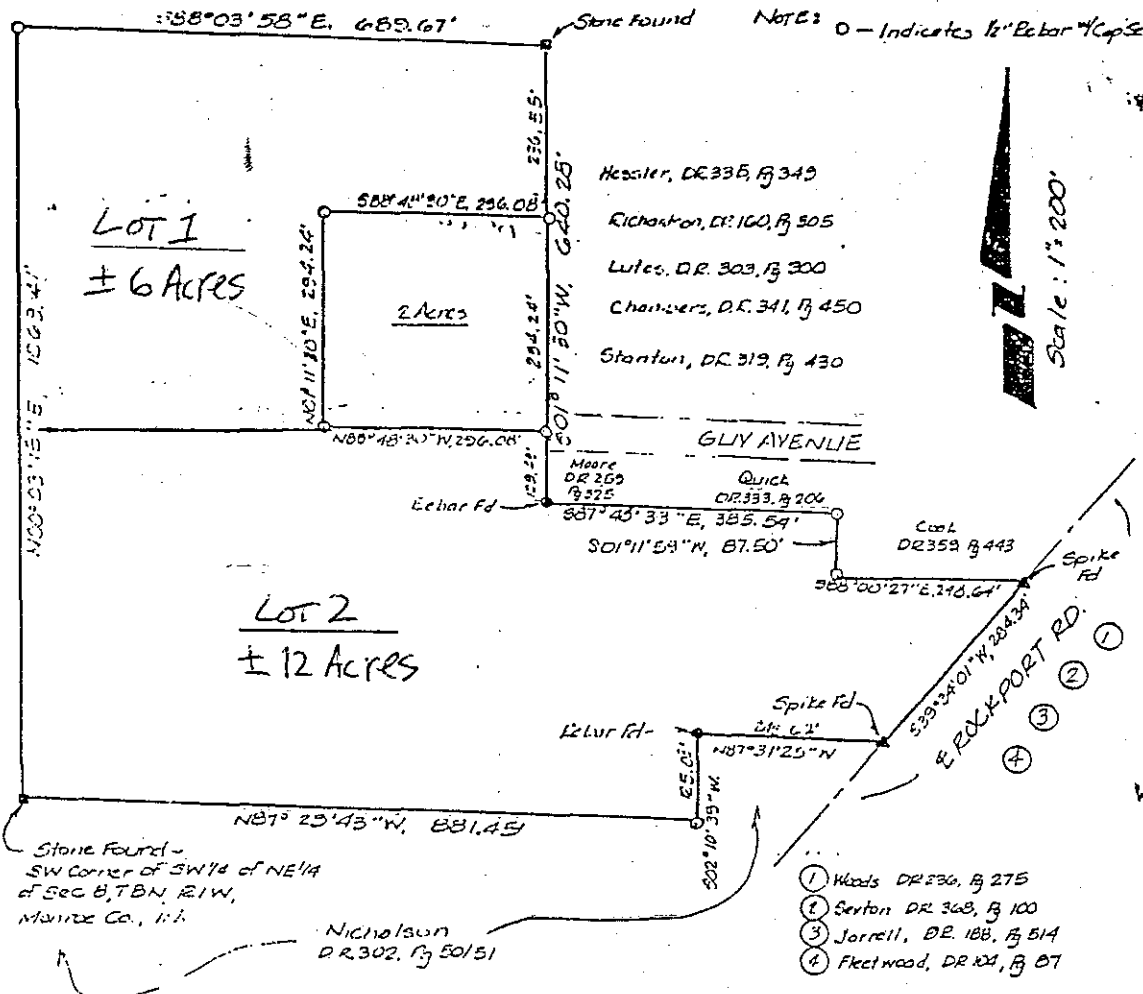 S88°03'58"E, 689.67'
Stone Found
NOTE:
O - Indicates 1/2" Rebar W/Cap Se
236.55'
S01°11'30"W, 640.25'
Hessler, DR 335, Pg 349
Richardson, DR. 160, Pg 505
Lutes, DR. 303, Pg 300
Chambers, D.R. 341, Pg 450
Stanton, DR 319, Pg 430
Scale: 1"=200'
LOT 1
± 6 Acres
E, 296.08'
N01°11'30"E, 294.24'
2 Acres
294.24'
N88°48'30"W, 296.08'
N00°03'15"E, 1063.41'
GUY AVENUE
Moore
DR 269
Pg 325
Quick
DR.333, Pg 206
Rebar Fd
S87°45'33"E, 385.54'
S01°11'59"W, 87.50'
Cook
DR359 Pg 443
S88°00'27"E, 248.64'
Spike
Fd
LOT 2
± 12 Acres
S39°34'01"W, 284.34'
℄ ROCKPORT RD.
1
2
3
4
Spike Fd
Rebar Fd-
N87°31'25"W
S02°10'39"W,
N87°29'43"W, 881.45'
Stone Found -
SW Corner of SW1/4 of NE1/4
of Sec 8, T8N, R1W,
Monroe Co.,
Nicholson
D.R.302, Pg 50/51
1 Woods DR236, Pg 275
2 Sexton DR 368, Pg 100
3 Jarrell, DR. 188, Pg 514
4 Fleetwood, DR 104, Pg 87